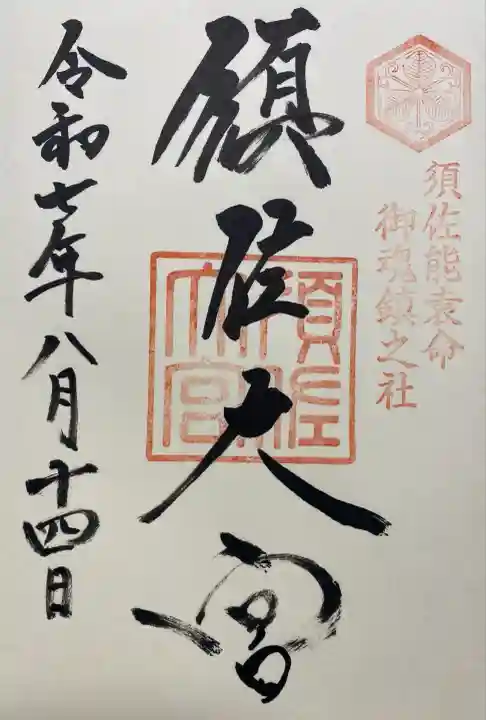 須佐能袁命
御魂鎮之社
須佐大宮
須佐大宮
令和七年八月十四日